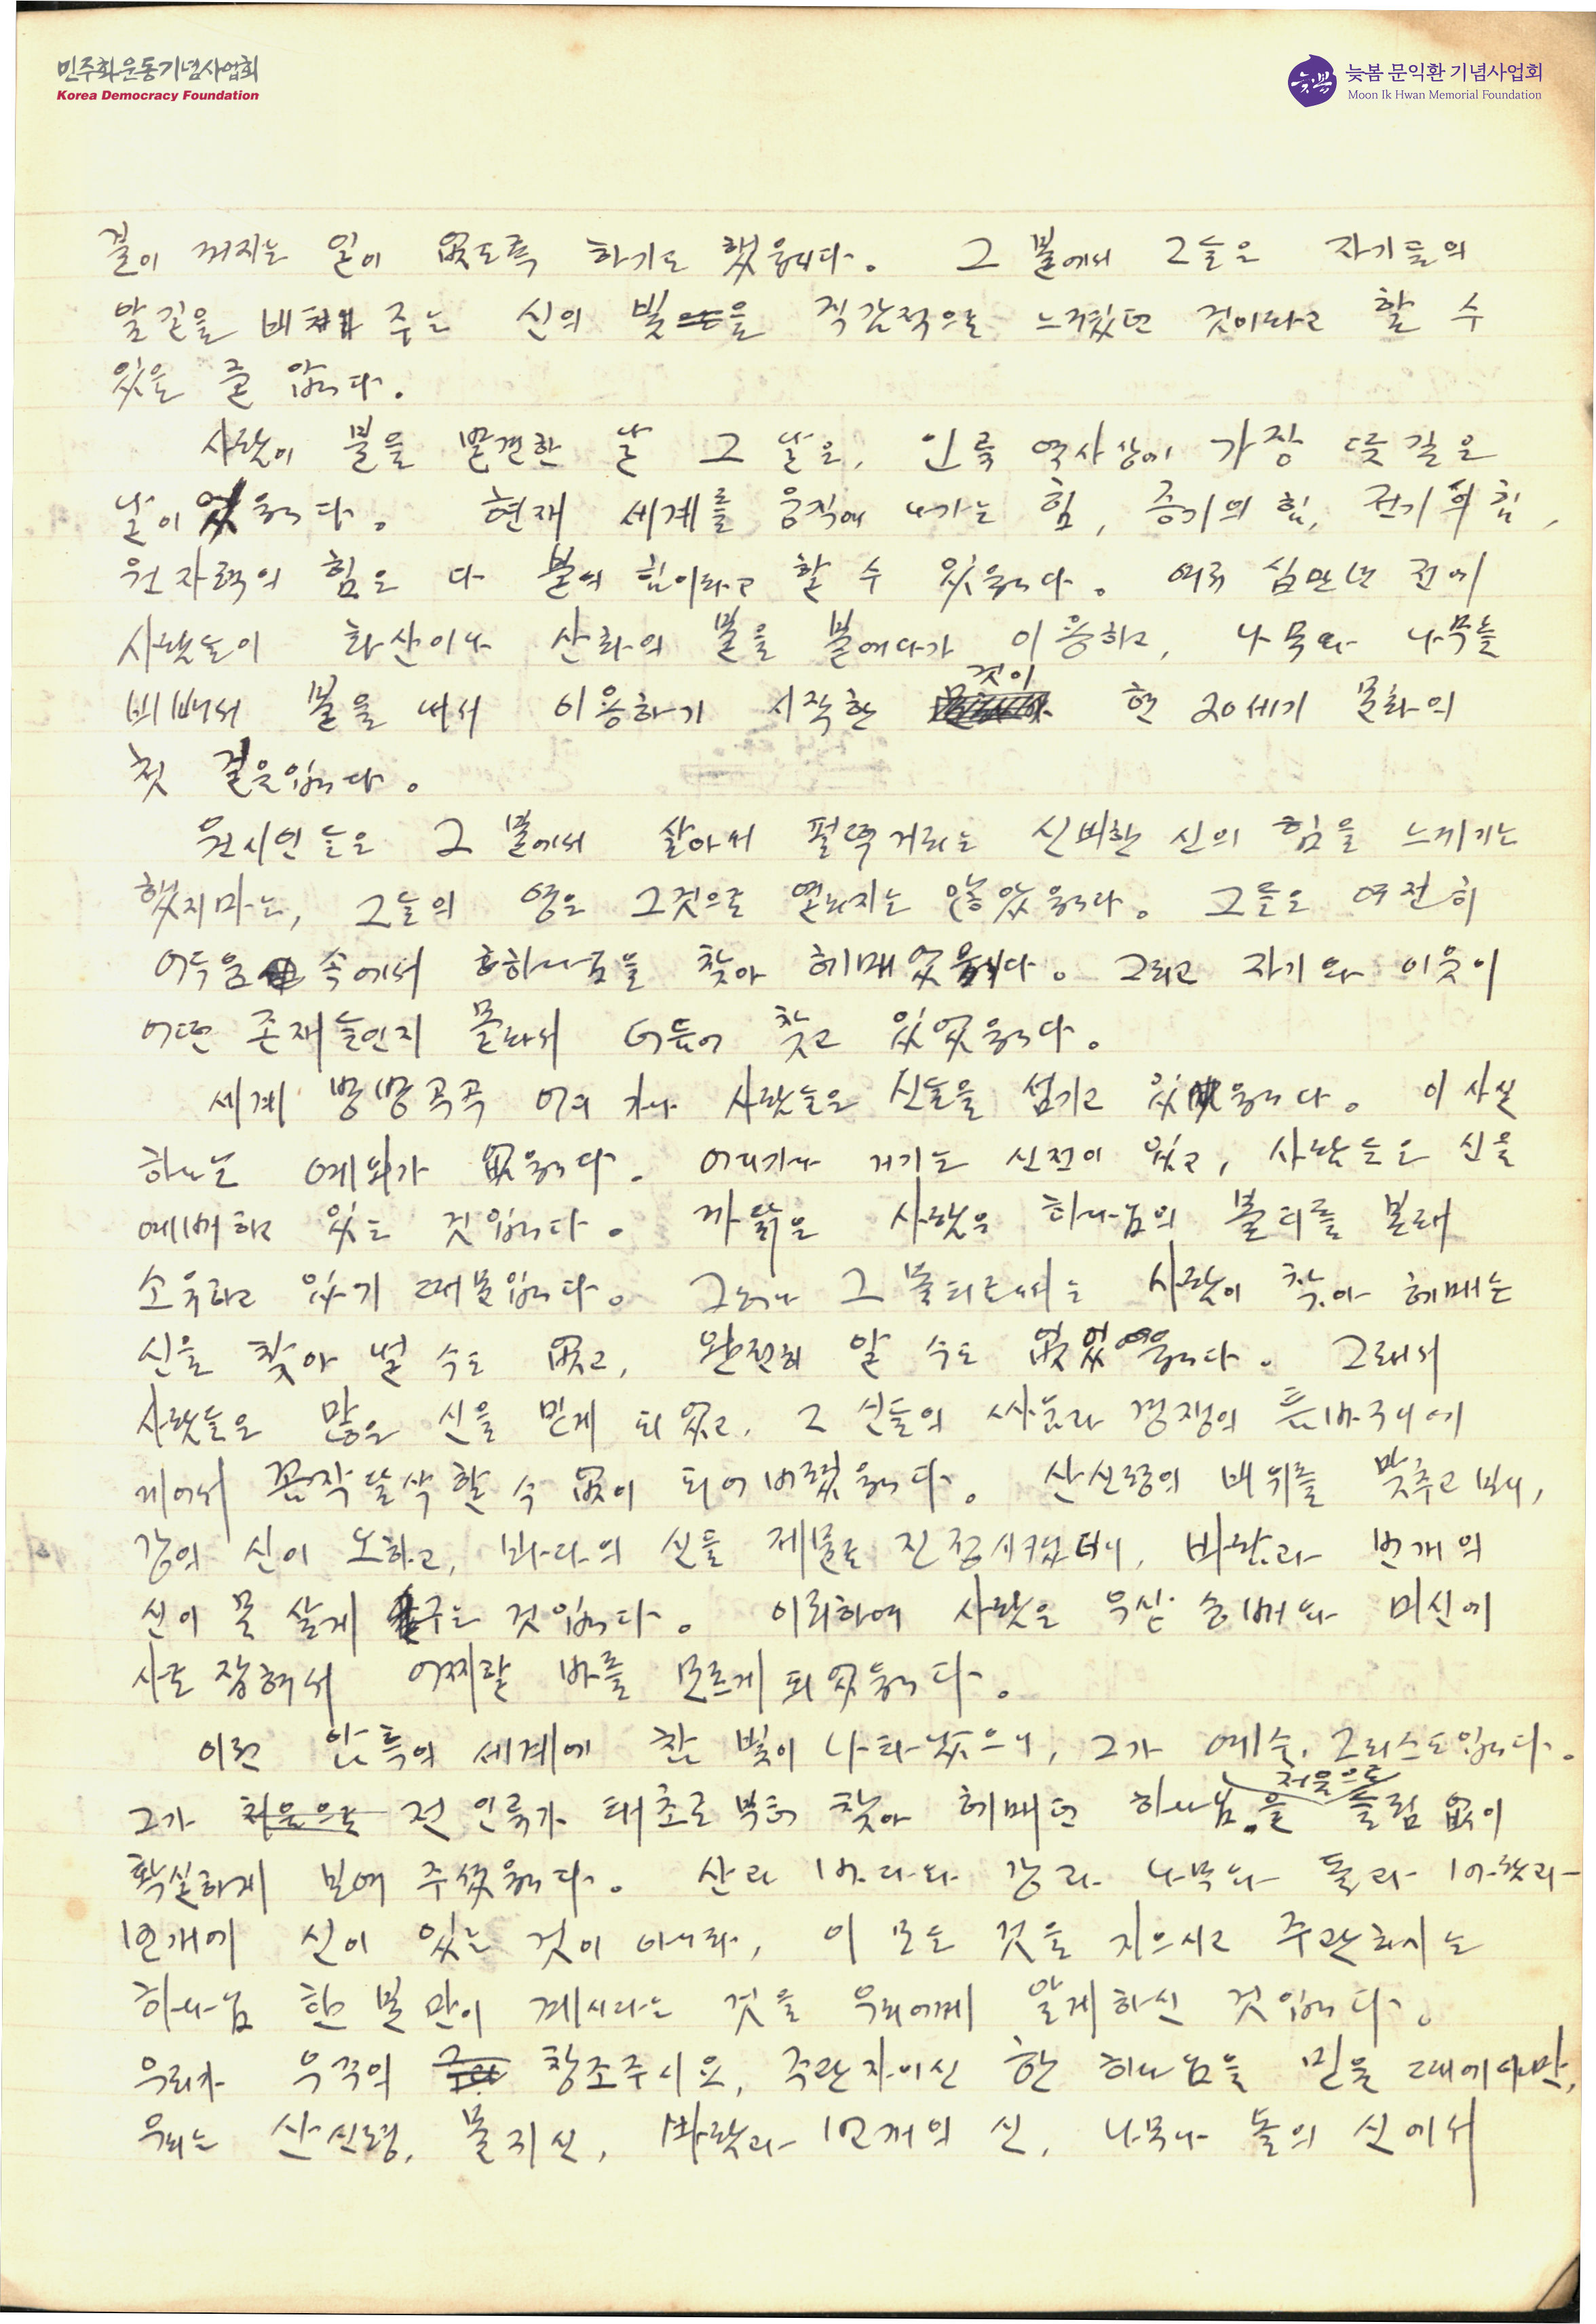 민주화운동기념사업회
Korea Democracy Foundation
늦봄
늦봄 문익환 기념사업회
Moon Ik Hwan Memorial Foundation
결이 꺼지는 일이 없도록 하기도 했읍니다. 그 불에서 그들은 자기들의
앞길을 비춰 주는 신의 빛을 직감적으로 느꼈던 것이라고 할 수
있을 줄 압니다.
사람이 불을 발견한 날 그 날은, 인류 역사상에 가장 뜻 깊은
날이었읍니다. 현재 세계를 움직여 나가는 힘, 증기의 힘, 전기의 힘,
원자력의 힘은 다 불의 힘이라고 할 수 있읍니다. 여러 십만년 전에
사람들이 화산이나 산화의 불을 붙여다가 이용하고, 나무와 나무를
비벼서 불을 내서 이용하기 시작한 것이 현 20세기 문화의
첫 걸음입니다.
원시인들은 그 불에서 살아서 펄덕거리는 신비한 신의 힘을 느끼기는
했지마는, 그들의 영은 그것으로 열려지는 않았읍니다. 그들은 여전히
어두움 속에서 하나님을 찾아 헤매었읍니다. 그리고 자기와 이웃이
어떤 존재들인지 몰라서 더듬어 찾고 있었읍니다.
세계 방방곡곡 어디 가나 사람들은 신들을 섬기고 있읍니다. 이 사실
하나는 예외가 없읍니다. 어디가나 거기는 신전이 있고, 사람들은 신을
예배하고 있는 것입니다. 까닭은 사람은 하나님의 불티를 본래
소유하고 있기 때문입니다. 그러나 그 불티로써는 사람이 찾아 헤매는
신을 찾아 낼 수도 없고, 완전히 알 수도 없었읍니다. 그래서
사람들은 많은 신을 믿게 되었고, 그 신들의 싸움과 경쟁의 틈바구니에
끼어서 꼼작달삭 할 수 없이 되어버렸읍니다. 산신령의 비위를 맞추고 보니,
강의 신이 노하고, 바다의 신을 제물로 진정시켰더니, 바람과 번개의
신이 못 살게 구는 것입니다. 이리하여 사람은 우상 숭배와 미신에
사로 잡혀서 어찌할 바를 모르게 되었읍니다.
이런 암흑의 세계에 참 빛이 나타났으니, 그가 예수 그리스도입니다.
그가 전 인류가 태초로부터 찾아 헤매던 하나님을 처음으로 틀림 없이
확실하게 보여 주셨읍니다. 산과 바다와 강과 나무와 돌과 바람과
번개에 신이 있는 것이 아니라, 이 모든 것을 지으시고 주관하시는
하나님 한 분만이 계시다는 것을 우리에게 알게하신 것입니다.
우리가 우주의 창조주시요, 주관자이신 한 하나님을 믿을 때에라만,
우리는 산신령, 물지신, 바람과 번개의 신, 나무나 돌의 신에서